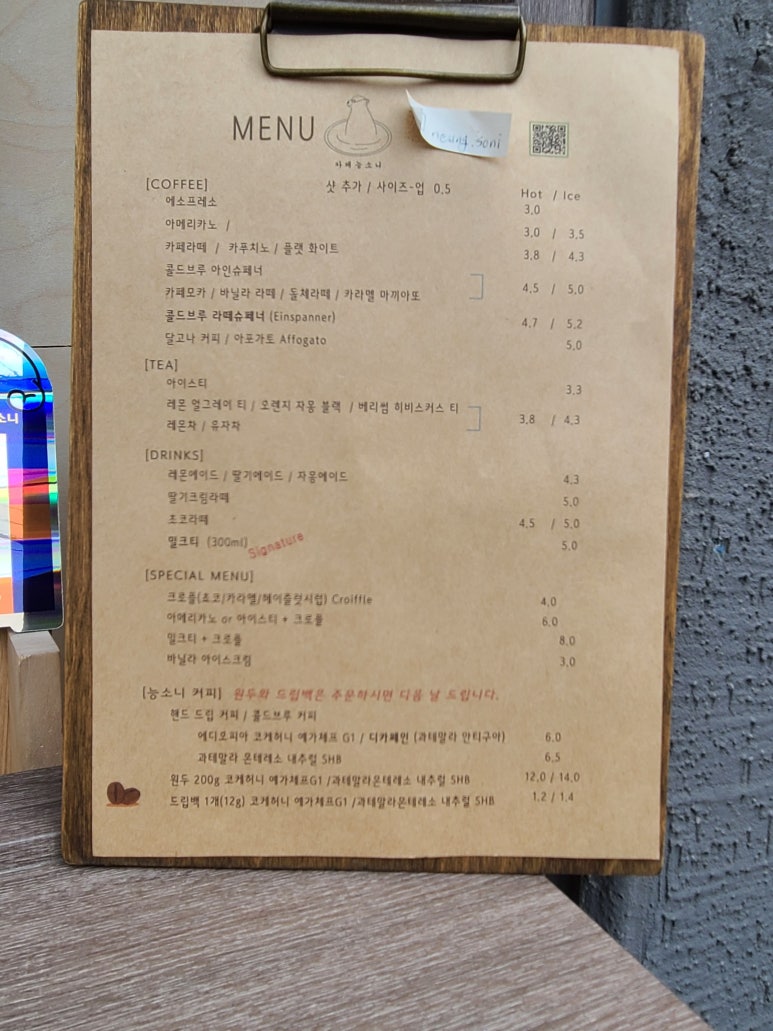 MENU
neung.soni
카페능소니
[COFFEE] 샷 추가 / 사이즈-업 0.5 Hot / Ice
에소프레소 3.0
아메리카노 / 3.0 / 3.5
카페라떼 / 카푸치노 / 플랫 화이트 3.8 / 4.3
콜드브루 아인슈페너
카페모카 / 바닐라 라떼 / 돌체라떼 / 카라멜 마끼아또 4.5 / 5.0
콜드브루 라떼슈페너 (Einspanner) 4.7 / 5.2
달고나 커피 / 아포가토 Affogato 5.0
[TEA]
아이스티 3.3
레몬 얼그레이 티 / 오렌지 자몽 블랙 / 베리썸 히비스커스 티
레몬차 / 유자차 3.8 / 4.3
[DRINKS]
레몬에이드 / 딸기에이드 / 자몽에이드 4.3
딸기크림라떼 5.0
초코라떼 4.5 / 5.0
밀크티 (300ml) Signature 5.0
[SPECIAL MENU]
크로플(초코/카라멜/헤이즐럿시럽) Croiffle 4.0
아메리카노 or 아이스티 + 크로플 6.0
밀크티 + 크로플 8.0
바닐라 아이스크림 3.0
[능소니 커피] 원두와 드립백은 주문하시면 다음 날 드립니다.
핸드 드립 커피 / 콜드브루 커피
에디오피아 코케허니 예가체프 G1 / 디카페인 (과테말라 안티구아) 6.0
과테말라 몬테레소 내추럴 SHB 6.5
원두 200g 코케허니 예가체프G1 /과테말라몬테레소 내추럴 SHB 12.0 / 14.0
드립백 1개(12g) 코케허니 예가체프G1 /과테말라몬테레소 내추럴 SHB 1.2 / 1.4
소니